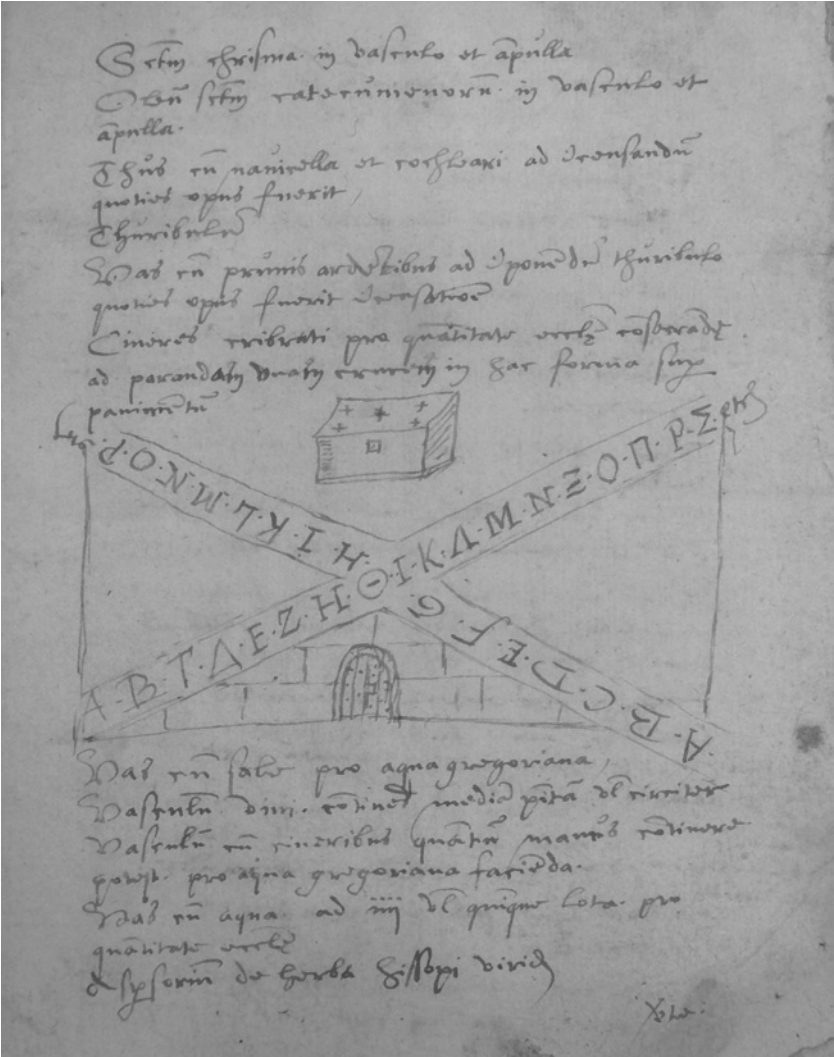 Sctm̄ chrisma in vasculo et āpulla
Oleū sctm̄ catecumenorū in vasculo et
āpulla.
Thus cū nauicella et cochleari ad īcensandū
quoties opus fuerit
Thuribulū
Vas cū prunis ardētibus ad īponēdū thuribulo
quoties opus fuerit īcensatiōe
Cineres cribrati pro quātitate ecclīę cōsecrādę
ad parandam vnam crucem in hac forma sup
pauimētū
P·O·N·M·L·K·I·H
Α·Β·Γ·Δ·Ε·Ζ·Η·Θ·Ι·Κ·Λ·Μ·Ν·Ξ·Ο·Π·Ρ·Σ etc
A·B·C·D·E·F·G
Vas cū sale pro aqua gregoriana
Vasculū vini cōtinēs mediā pītā vl circiter
Vasculū cū cineribus quātū manus cōtinere
potest pro aqua gregoriana faciēda.
Vas cū aqua ad iiij vl quīque lota pro
quātitate ecclīę
Aspsoriū de herba hissopi virid